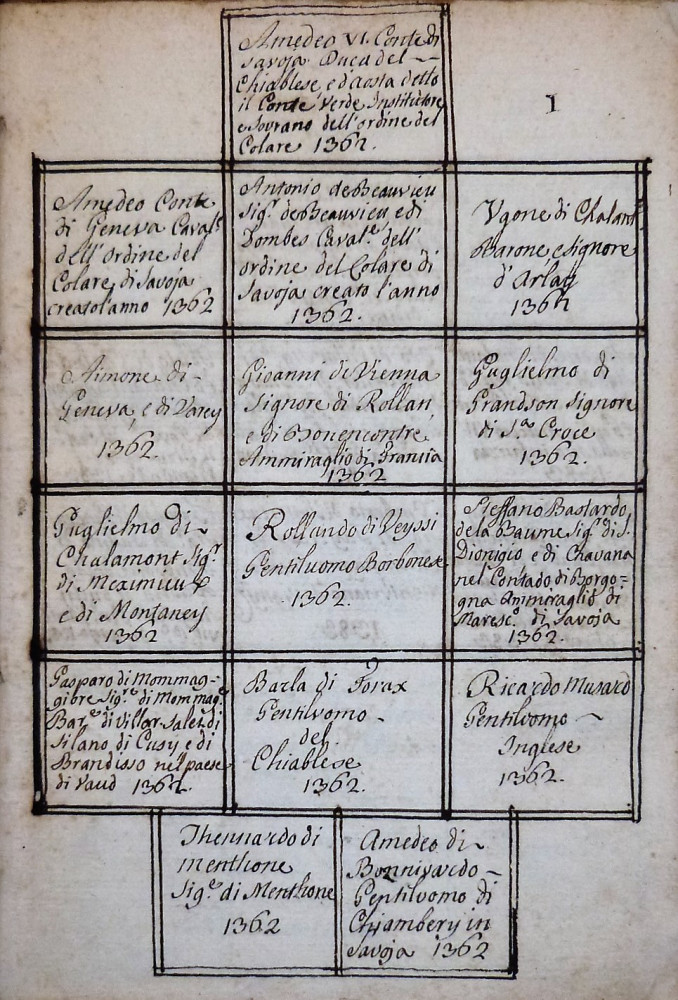 Amedeo VI. Conte di
Savoja Duca del
Chiablese, e d'Aosta detto
il Conte Verde Institutore
e Sovrano dell'ordine del
Colare 1362.
1
Amedeo Conte
di Geneva Caval.e
dell'ordine del
Colare di Savoja
creato l'anno 1362
Antonio de Beauvieu
Sig.r de Beauvieu e di
Dombes Caval.e dell'
ordine del Colare di
Savoja creato l'anno
1362.
Vgone di Chalant
Barone, e Signore
d'Arlay
1362
Aimone di
Geneva, e di Varey
1362.
Gioanni di Vienna
Signore di Rollan,
e di Bonencontre,
Ammiraglio di Francia
1362
Guglielmo di
Grandson Signore
di S.a Croce
1362.
Guglielmo di
Chalamont Sig.r
di Meximieu
e di Montaney
1362
Rollando di Veyssi
Gentiluomo Borbonese
1362.
Steffano Bastardo
de la Baume Sig.r di S.
Dionigio e di Chavana
nel Contado di Borgo=
gna Ammiraglio di
Maresc.o di Savoja
1362.
Gasparo di Mommag=
gibre Sig.re di Mommag.e
Bar.e di Villar Salet di
Silano di Cusy e di
Brandisso nel paese
di Vaud 1362.
Barla di Forax
Gentilvomo
del
Chiablese
1362.
Ricardo Musard
Gentilvomo
Inglese
1362.
Thennardo di
menthone
Sig.e di Menthone
1362
Amedeo di
Bonnivardo
Gentilvomo di
Chiambery in
Savoja 1362